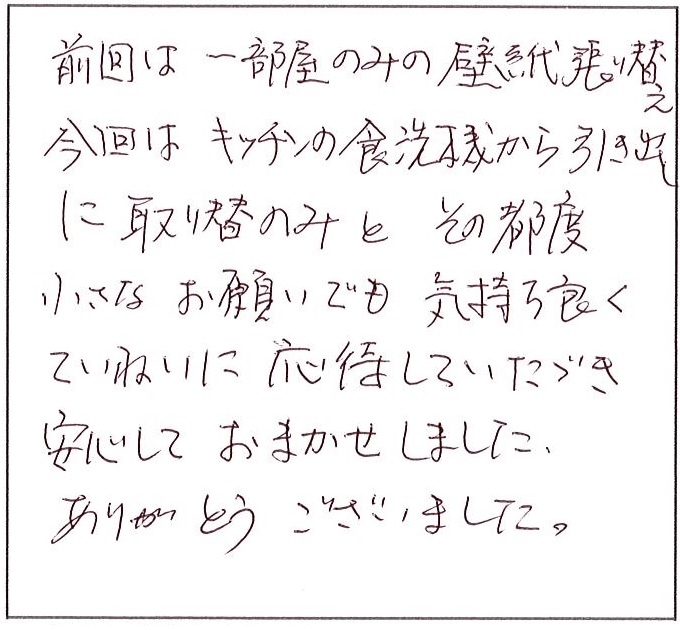 前回は 一部屋のみの 壁紙代 張り替え
今回は キッチンの食洗機から引き出し
に取り替のみと その都度
小さな お願いでも 気持ち良く
ていねいに 応待していただき
安心して おまかせしました、
ありがとう ございました。